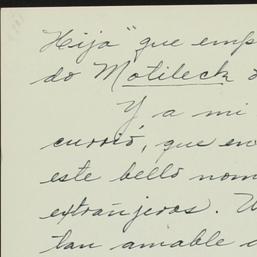 Hija" que emp
do Motileck
Y a mi
currió, que en
este bello nom
extranjeros. U
tan amable